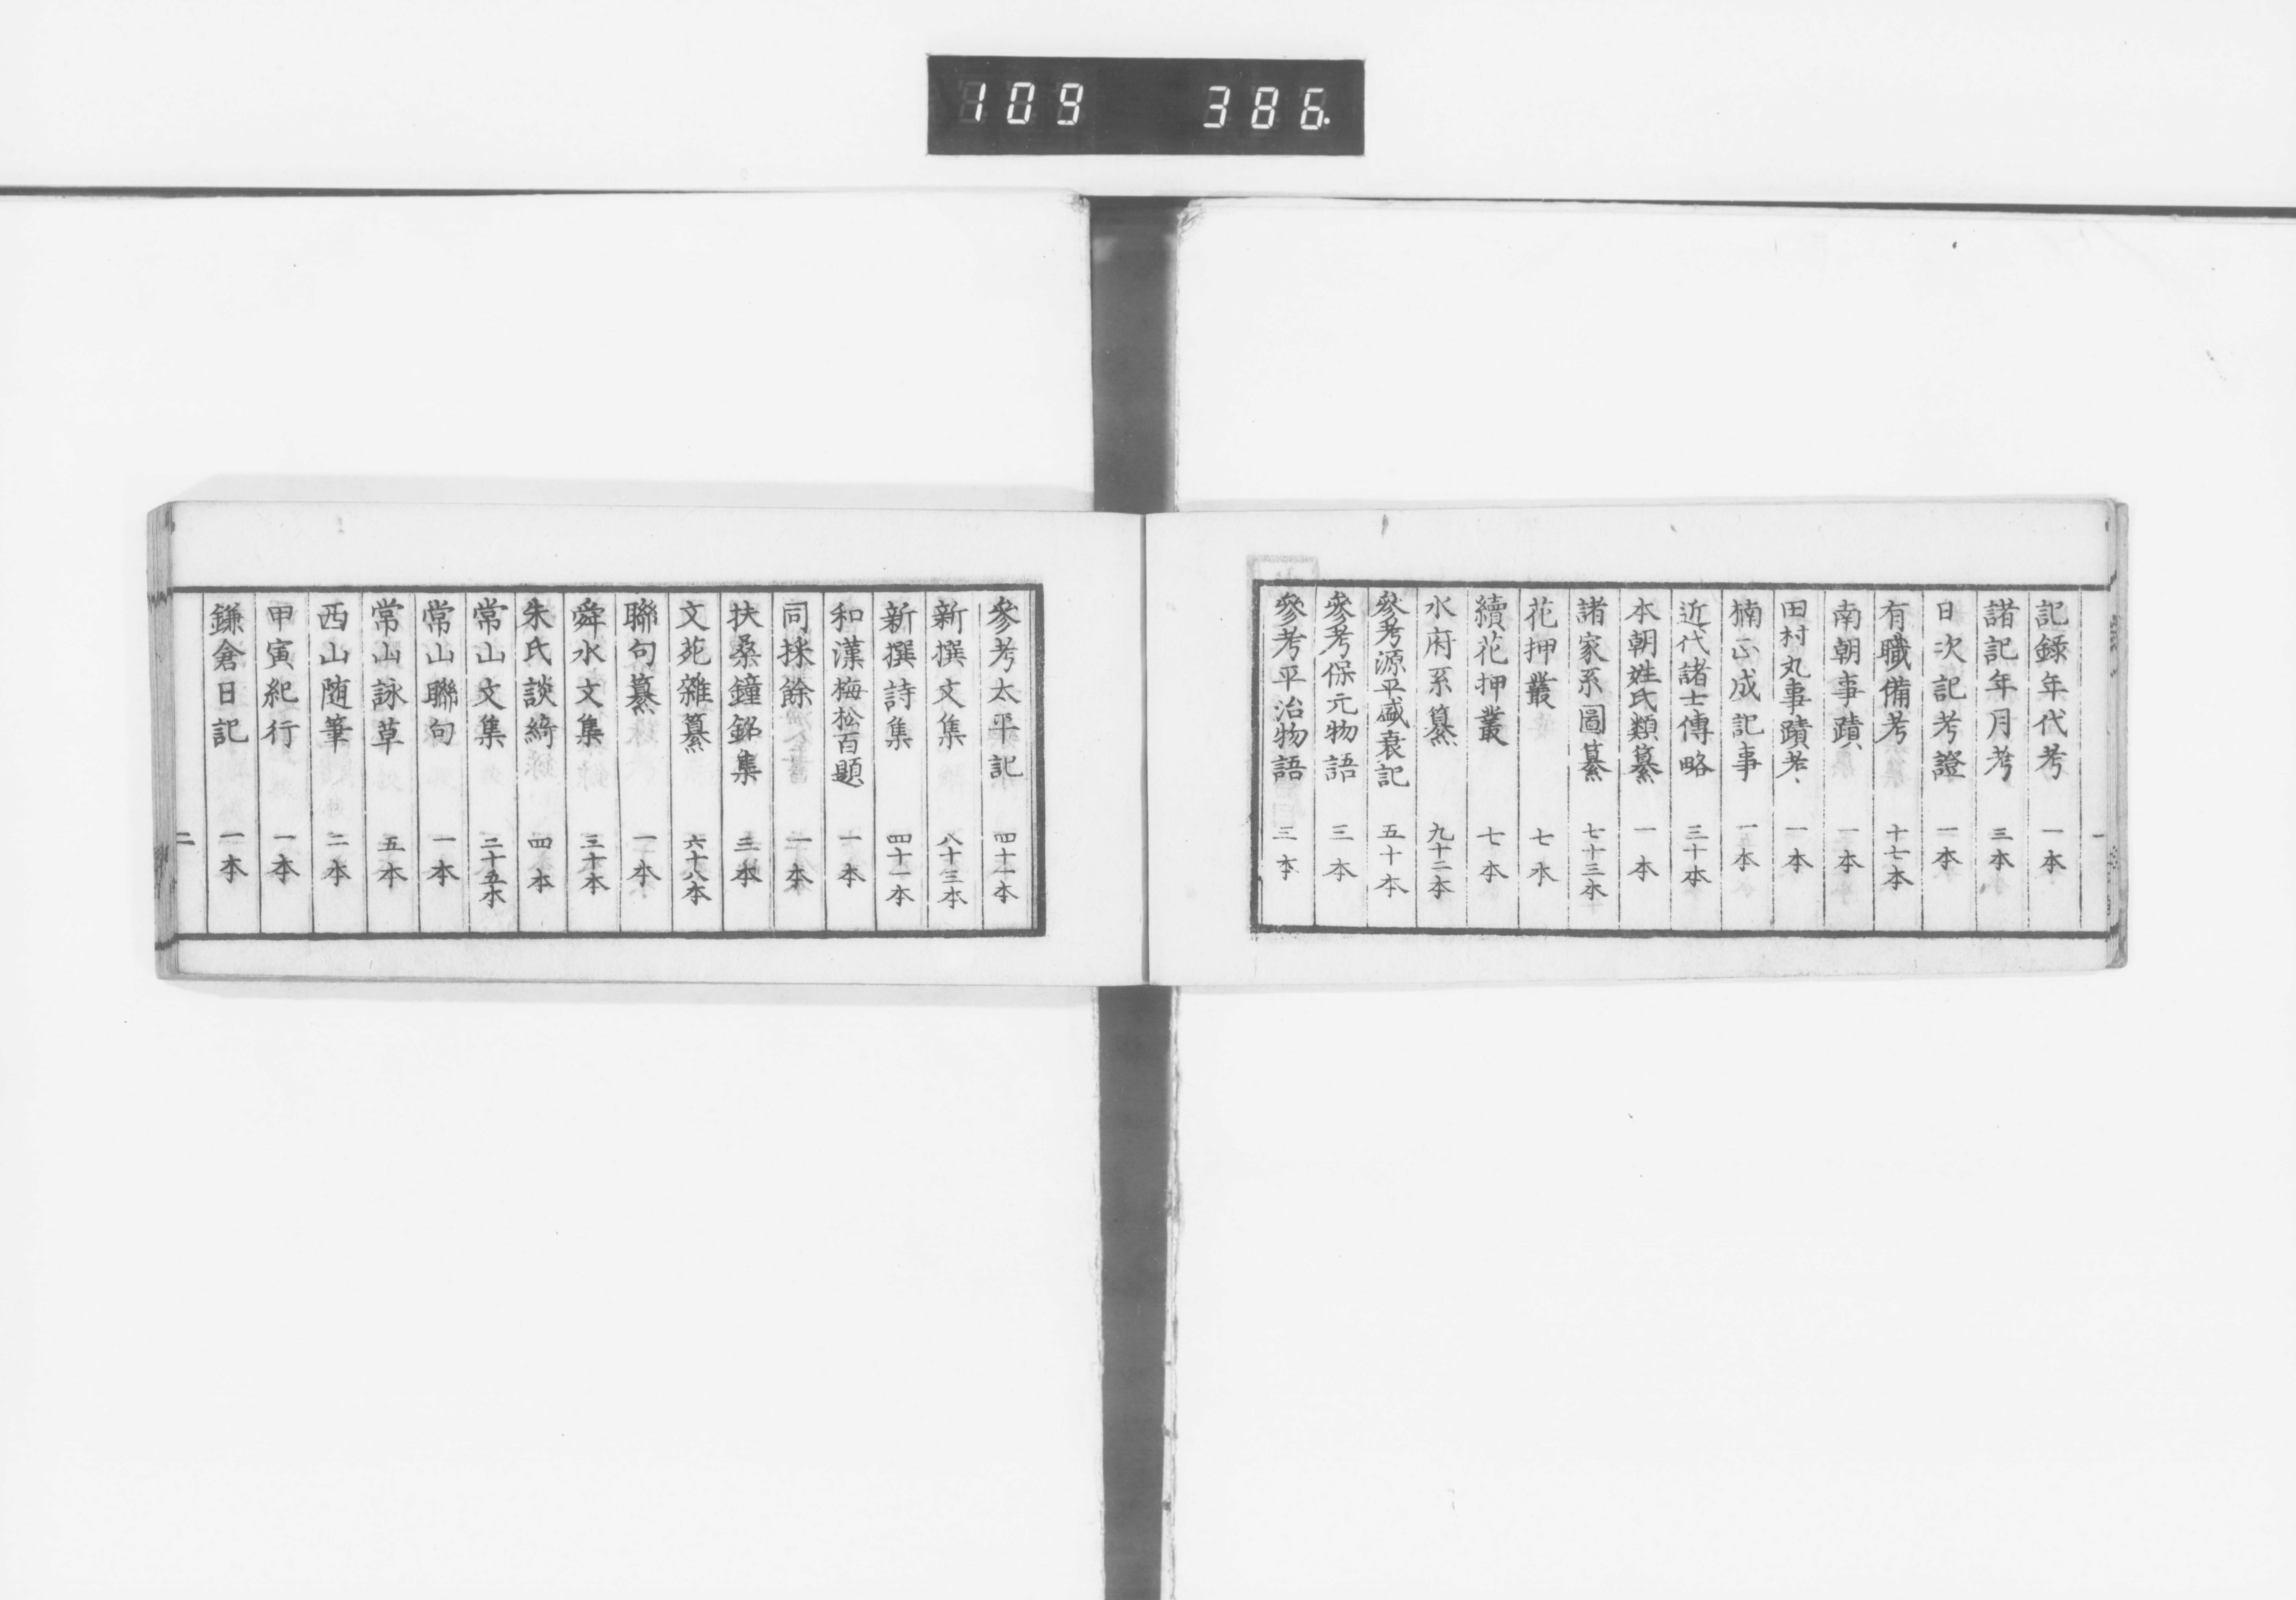 109 386.
一
記録年代考 一本
諸記年月考 三本
日次記考證 一本
有職備考 十七本
南朝事蹟 一本
田村丸事蹟考 一本
楠正成記事 一本
近代諸士傳略 三十本
本朝姓氏類纂 一本
諸家系圖纂 七十三本
花押叢 七本
續花押叢 七本
水府系纂 九十二本
參考源平盛衰記 五十本
參考保元物語 三本
參考平治物語 三本
參考太平記 四十一本
新撰文集 八十三本
新撰詩集 四十一本
和漢梅松百題 一本
同採餘 一本
扶桑鐘銘集 三本
文苑雜纂 六十八本
聯句纂 一本
舜水文集 三十本
朱氏談綺 四本
常山文集 二十五本
常山聯句 一本
常山詠草 五本
西山随筆 二本
甲寅紀行 一本
鎌倉日記 一本
二